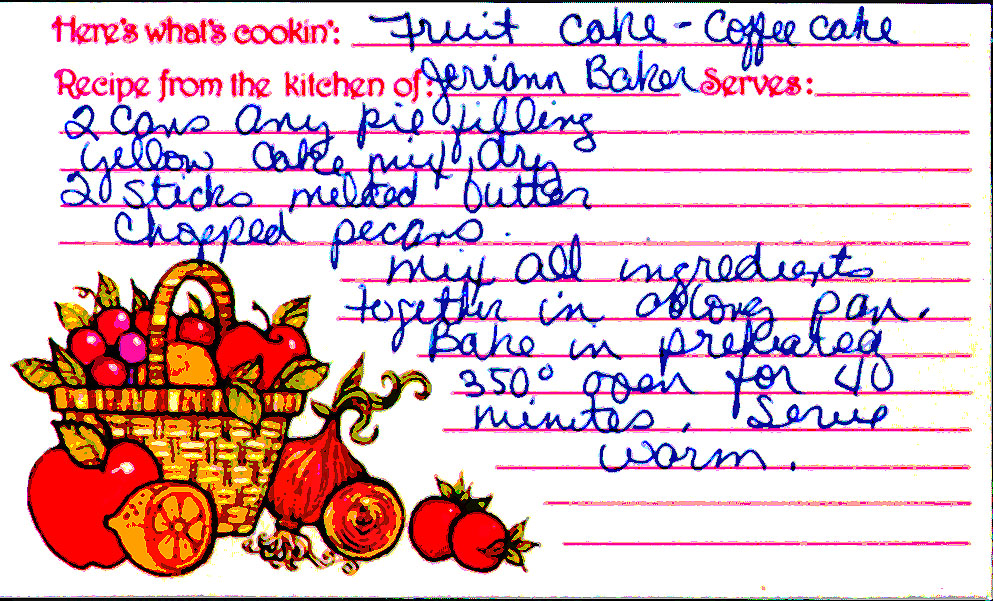 Here's what's cookin': Fruit Cake - Coffee cake
Recipe from the kitchen of: Jeriann Baker Serves:
2 Cans any pie filling
Yellow cake mix, dry
2 sticks melted butter
Chopped pecans.
Mix all ingredients
together in oblong pan.
Bake in preheated
350° oven for 40
minutes. Serve
warm.